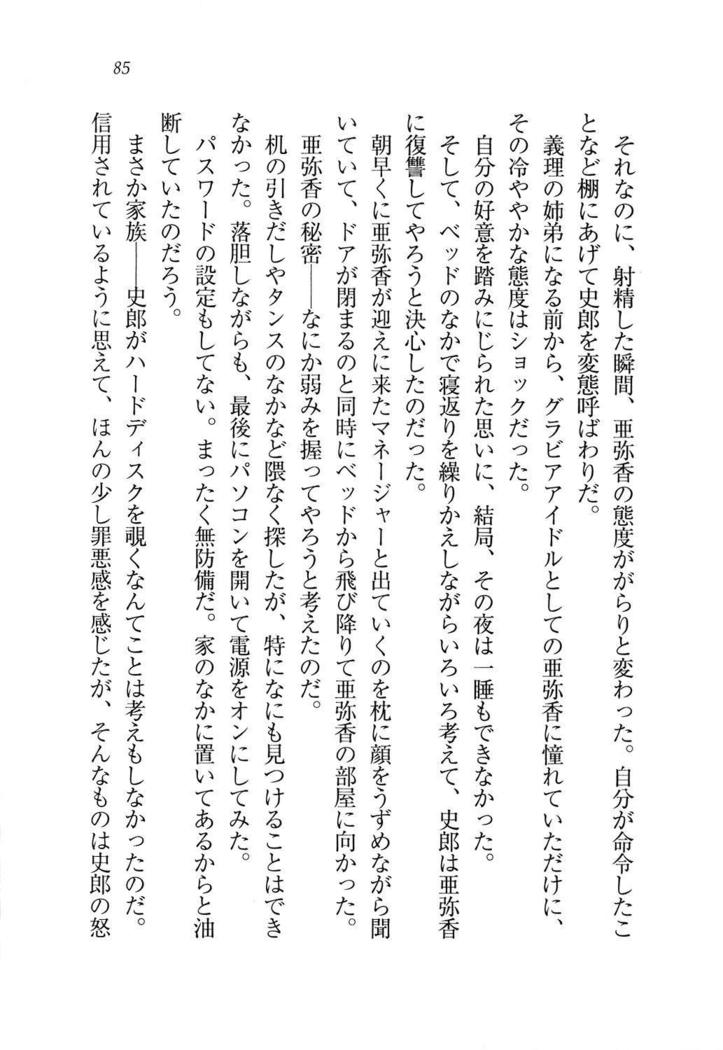 85
それなのに、射精した瞬間、亜弥香の態度ががらりと変わった。自分が命令したこ
となど棚にあげて史郎を変態呼ばわりだ。
義理の姉弟になる前から、グラビアアイドルとしての亜弥香に憧れていただけに、
その冷ややかな態度はショックだった。
自分の好意を踏みにじられた思いに、結局、その夜は一睡もできなかった。
そして、ベッドのなかで寝返りを繰りかえしながらいろいろ考えて、史郎は亜弥香
に復讐してやろうと決心したのだった。
朝早くに亜弥香が迎えに来たマネージャーと出ていくのを枕に顔をうずめながら聞
いていて、ドアが閉まるのと同時にベッドから飛び降りて亜弥香の部屋に向かった。
亜弥香の秘密――なにか弱みを握ってやろうと考えたのだ。
机の引きだしやタンスのなかなど隈なく探したが、特になにも見つけることはでき
なかった。落胆しながらも、最後にパソコンを開いて電源をオンにしてみた。
パスワードの設定もしてない。まったく無防備だ。家のなかに置いてあるからと油
断していたのだろう。
まさか家族――史郎がハードディスクを覗くなんてことは考えもしなかったのだ。
信用されているように思えて、ほんの少し罪悪感を感じたが、そんなものは史郎の怒